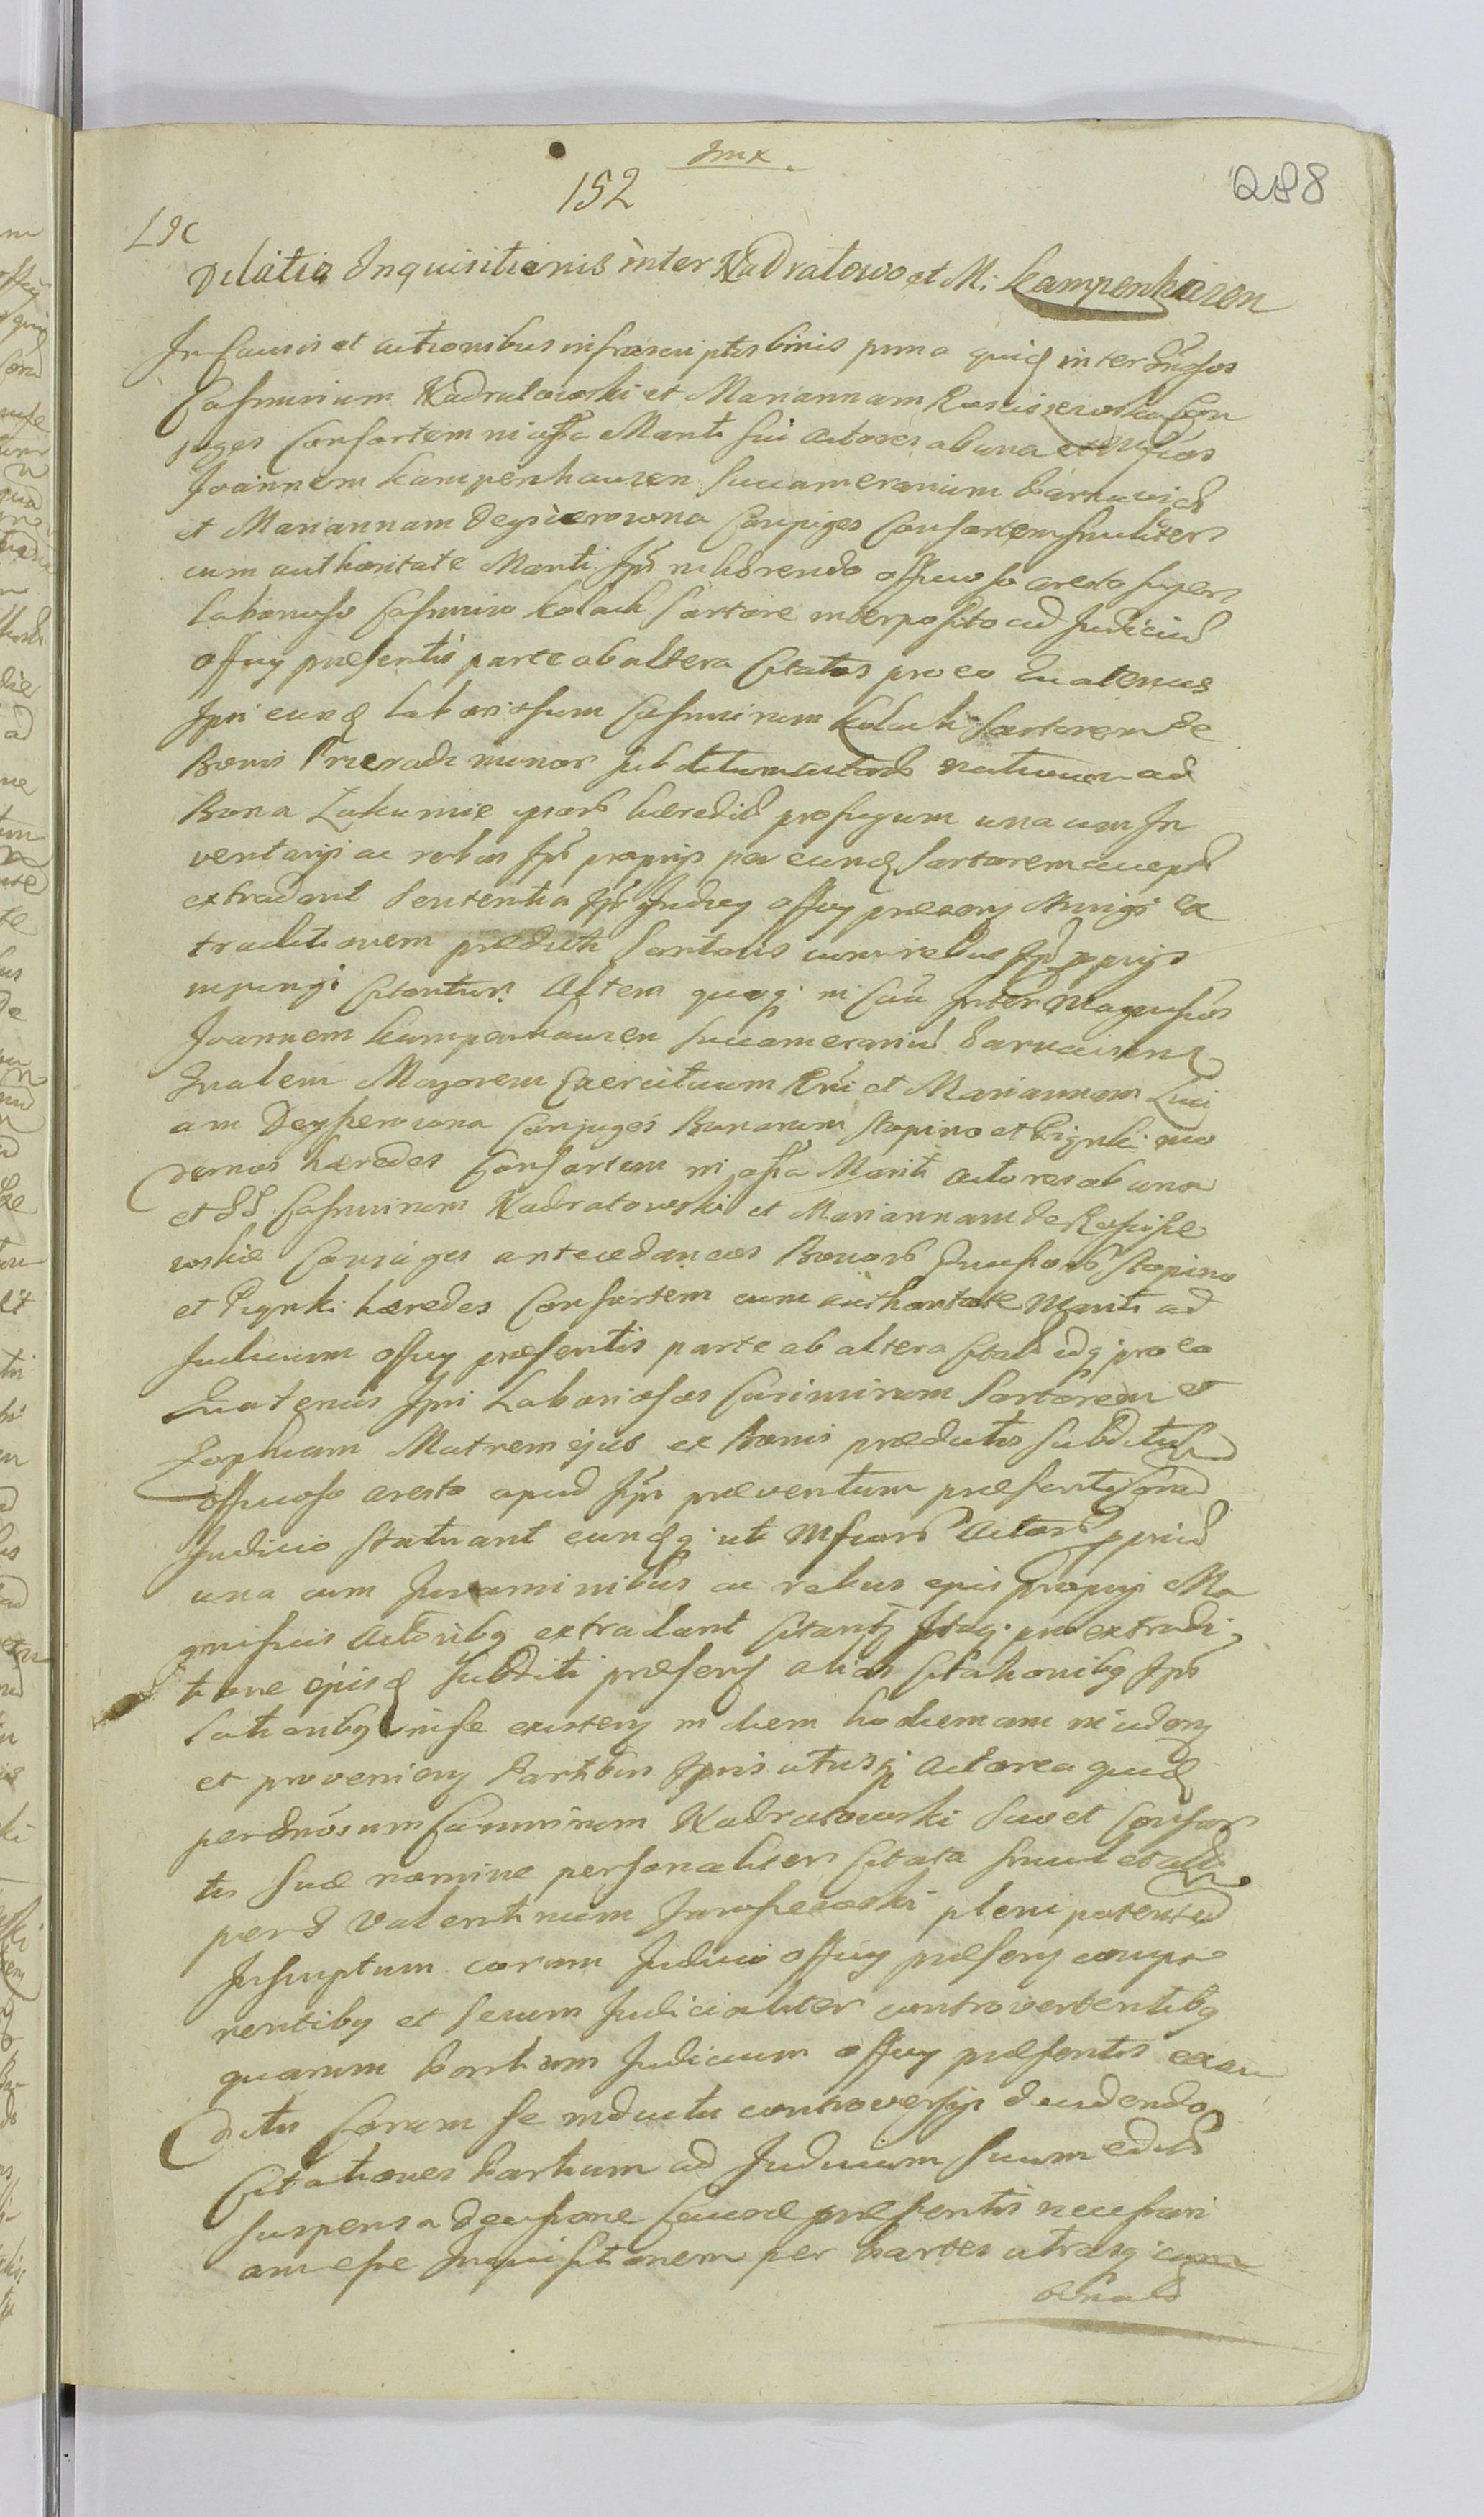 Jmx
152
288
L9C
Dilatio Inquisitionis inter Nadratowo et M: Kampenhazen
In Causis et actionibus infrascriptis binis prima quid inter Gnosos
Casimirum Nadratowski et Mariannam Rosciszewska Con
juges Consortem in assa Mariti sui actores ab una et Mficos
Joannem Kampenhauzen Succamerarium
et Mariannam Deysierowna Conjuges Consortem similiter
cum authoritate Mariti Ipsi inhærendo officioso aresto super
Laborioso Casimiro Kolach Sartore interposito ad Judiciu
Officy præsentis parte ab altera Citatos pro eo Quatenus
Ipsi eund Laboriosum Casimirum Kolach Sartorem de
Bonis minor subditum actorb nativum ad
Bona hæredit profugum una cum In
ventarijs ac rebus Ips proprijs per eund Sartorem accept
extradant Sententia Ips Judicy officy præsens stringi ex
traditionem prædicti Sartoris cum rebus Ips pprijs
injungi Citantur. Altera quoq; in Cau Inter Magnificos
Joannem Kampenhauzen Succamerariu
Gnalem Majorem Exercituum Rni et Mariannam Luci
am Deyserowna Conjuges Bonorum Stopino et mo
dernos hæredes Consortem in assa Mariti actores ab una
et GG Casimirum Nadratowski et Mariannam de Roscisze
wskie Conjuges antecedaneos Bonorb Stopino
et hæredes Consortem cum authoritate Mariti ad
Judicium officy præsentis parte ab altera Citat idq; pro eo
Quatenus Ipsi Laboriosos Casimirum Sartorem et
Zophiam Matrem ejus ex Bonis prædictis subditus
officioso aresto apud Ips præventum præsenti
Judicio statuant eundq; ut Mficorb Actorb ppriu
una cum ac rebus ejus proprijs Ma
gnificis Actoribq extradant Citantq Itaq; pro extradi
tione ejusd subditi præsens alias Citationibq Ips
Lationibq inse existens in diem hodiernam incidens
et proveniens Partibus Ipsis utrisq; Actorea quid
per Gnosum Casimirum Nadratowski suo et Consor
tis suæ nomine personaliter Citata simul et alti
per G Valentinum pleni potentem
Inscriptum coram Judicio officy præsens compa
rentibq et secum Judicialiter controvertentibq
quarum Partium Judicium officy præsentis exau
ditis Coram se inductis controversijs decidendo
Citationes Partium ad Judicium suum edit
suspensa decisione Causæ præsentis necessari
am esse Inquisitionem per Partes utrasq;